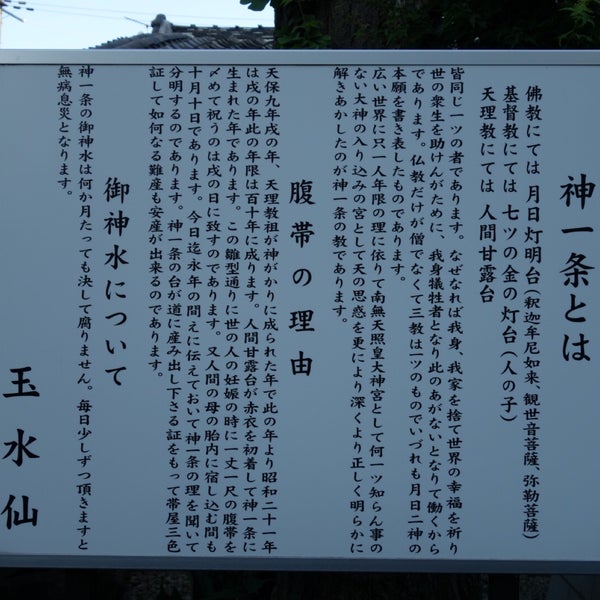 神一条とは
佛教にては 月日灯明台(釈迦牟尼如来、観世音菩薩、弥勒菩薩)
基督教にては 七ツの金の灯台(人の子)
天理教にては 人間甘露台
皆同じ一ツの者であります。なぜなれば我身、我家を捨て世界の幸福を祈り
世の衆生を助けんがために、我身犠牲者となり此のあがないとなりて働くから
であります。仏教だけが僧でなくて三教は一ツのものでいづれも月日二神の
本願を書き表したものであります。
広い世界に只一人年限の理に依りて南無天照皇大神宮として何一ツ知らん事の
ない大神の入り込みの宮として天の思惑を更により深くより正しく明らかに
解きあかしたのが神一条の教であります。
腹帯の理由
天保九年戌の年、天理教祖が神がかりに成られた年で此の年より昭和二十一年
は戌の年此の年限は百十年に成ります。人間甘露台が赤衣を初着して神一条に
生まれた年であります。この雛型通りに世の人の妊娠の時に一丈一尺の腹帯を
〆めて祝うのは戌の日に致すのであります。又人間の母の胎内に宿し込む間も
十月十日であります。今日迄永年の問えに伝えておいて神一条の理を聞いて
分明するのであります。神一条の台が道に産み出し下さる証をもって帯屋三色
証して如何なる難産も安産が出来るのであります。
御神水について
神一条の御神水は何か月たっても決して腐りません。毎日少しずつ頂きますと
無病息災となります。
玉水仙